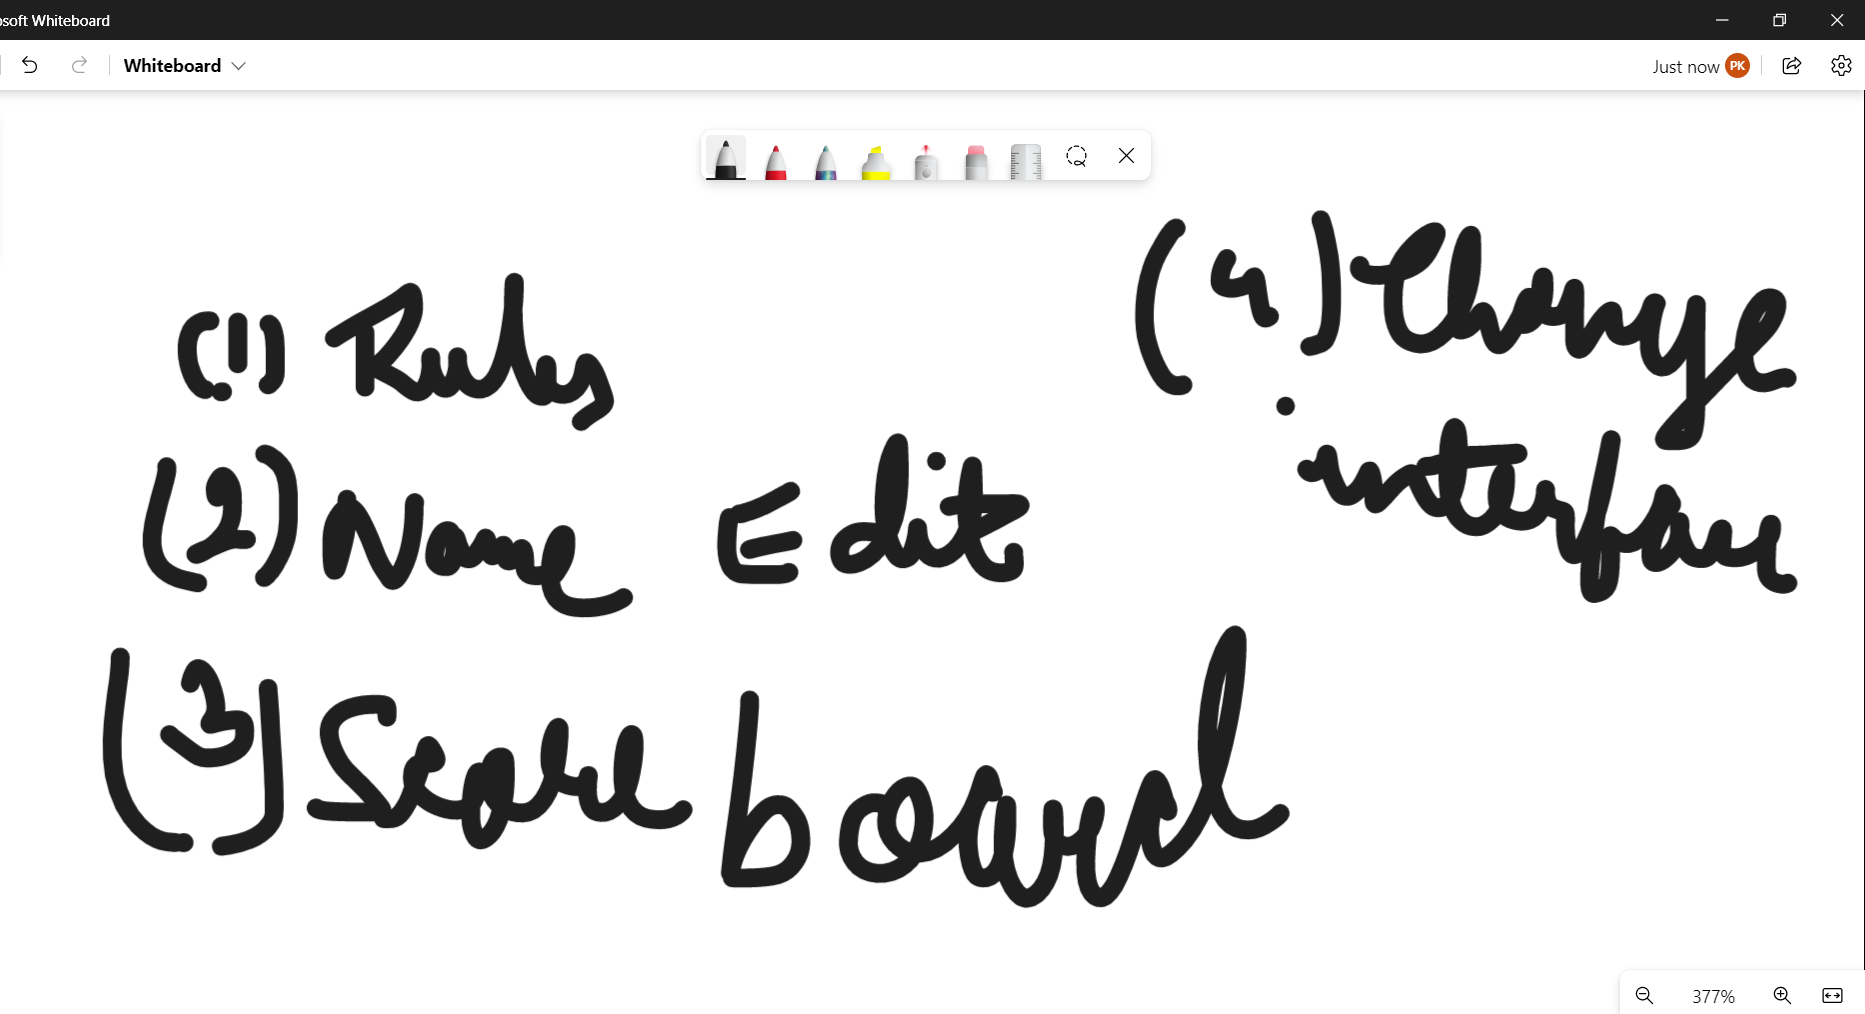 osoft Whiteboard
Whiteboard
Just now PK
(1) Rules
(2) Name Edit
(3) Score board
(4) Change
interface
377%